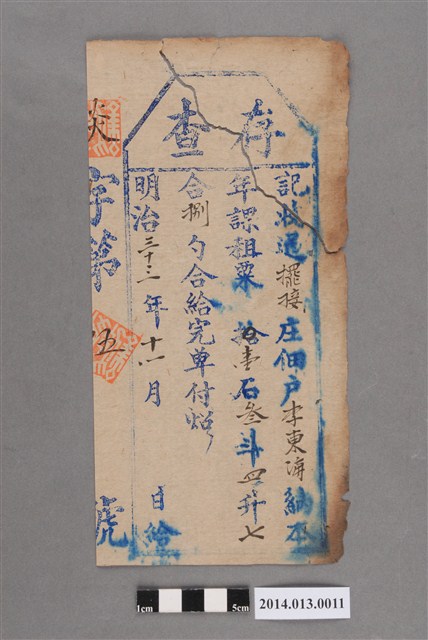 存查
記收過擺接庄佃户李東海納本
年課租粟拾壹石叁斗四升七
合捌勺合給完單付炤
明治三十三年十一月 日給
炎字第 五號
1cm 5cm
2014.013.0011